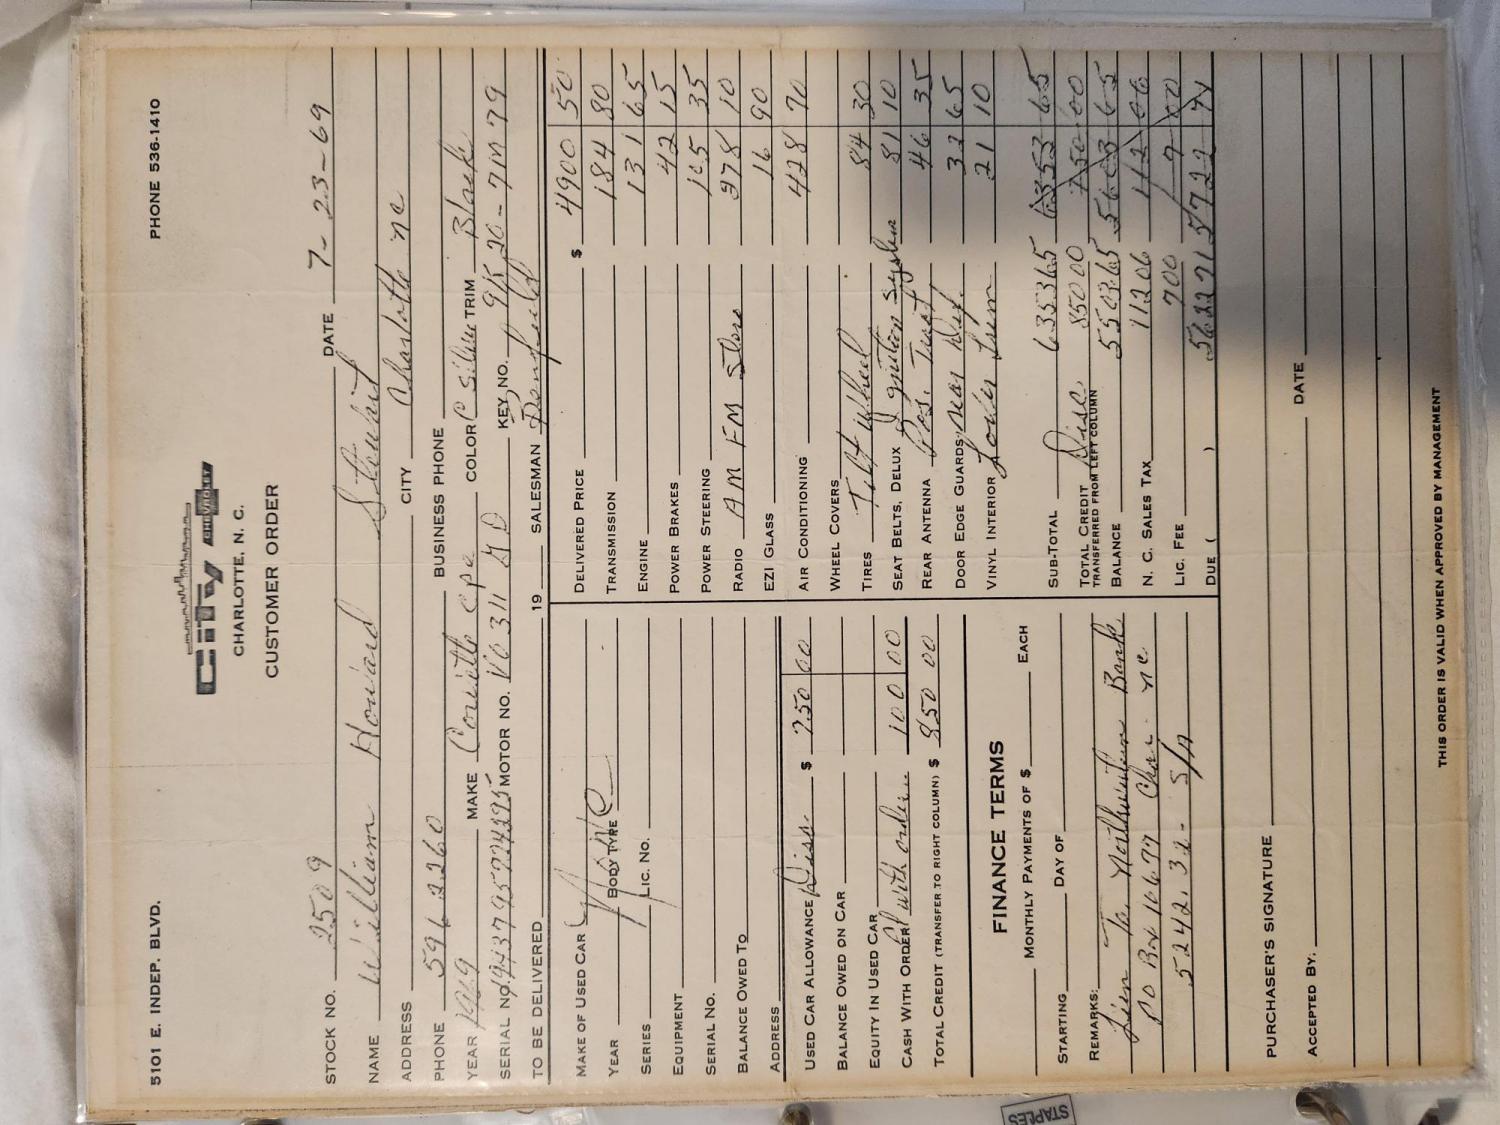 5101 E. INDEP. BLVD. PHONE 536-1410
City CHEVROLET
CHARLOTTE, N. C.
CUSTOMER ORDER
STOCK NO. 2509 DATE 7-23-69
NAME William Howard
ADDRESS CITY Charlotte nc
PHONE 596 2260 BUSINESS PHONE
YEAR 1969 MAKE Corvette cpe COLOR C Silver TRIM Black
SERIAL NO. MOTOR NO. KEY NO.
TO BE DELIVERED 19 SALESMAN
MAKE OF USED CAR
YEAR BODY TYPE
SERIES LIC. NO.
EQUIPMENT
SERIAL NO.
BALANCE OWED TO
ADDRESS
USED CAR ALLOWANCE Disc. $ 750 00
BALANCE OWED ON CAR
EQUITY IN USED CAR
CASH WITH ORDER with order 100 00
TOTAL CREDIT (TRANSFER TO RIGHT COLUMN) $ 850 00
FINANCE TERMS
MONTHLY PAYMENTS OF $ EACH
STARTING DAY OF
REMARKS:
Lien To. Northwestern Bank
PO Box 10677 Char. nc
5242.32 -
DELIVERED PRICE $ 4900 50
TRANSMISSION 184 80
ENGINE 131 65
POWER BRAKES 42 15
POWER STEERING 105 35
RADIO AM FM Stereo 278 10
EZI GLASS 16 90
AIR CONDITIONING 428 70
WHEEL COVERS
TIRES Tilt wheel 84 30
SEAT BELTS, DELUX Ignition System 81 10
REAR ANTENNA Pos. Tract 46 35
DOOR EDGE GUARDS rear Def. 32 65
VINYL INTERIOR 21 10
SUB-TOTAL 6353 65 6353 65
TOTAL CREDIT Disc. 850 00 750 00
TRANSFERRED FROM LEFT COLUMN
BALANCE 5503.65 5603 65
N. C. SALES TAX 112 06 112 06
LIC. FEE 7 00 7 00
DUE ( ) 5622 71 5722 71
PURCHASER'S SIGNATURE
ACCEPTED BY. DATE
THIS ORDER IS VALID WHEN APPROVED BY MANAGEMENT
STAPLES